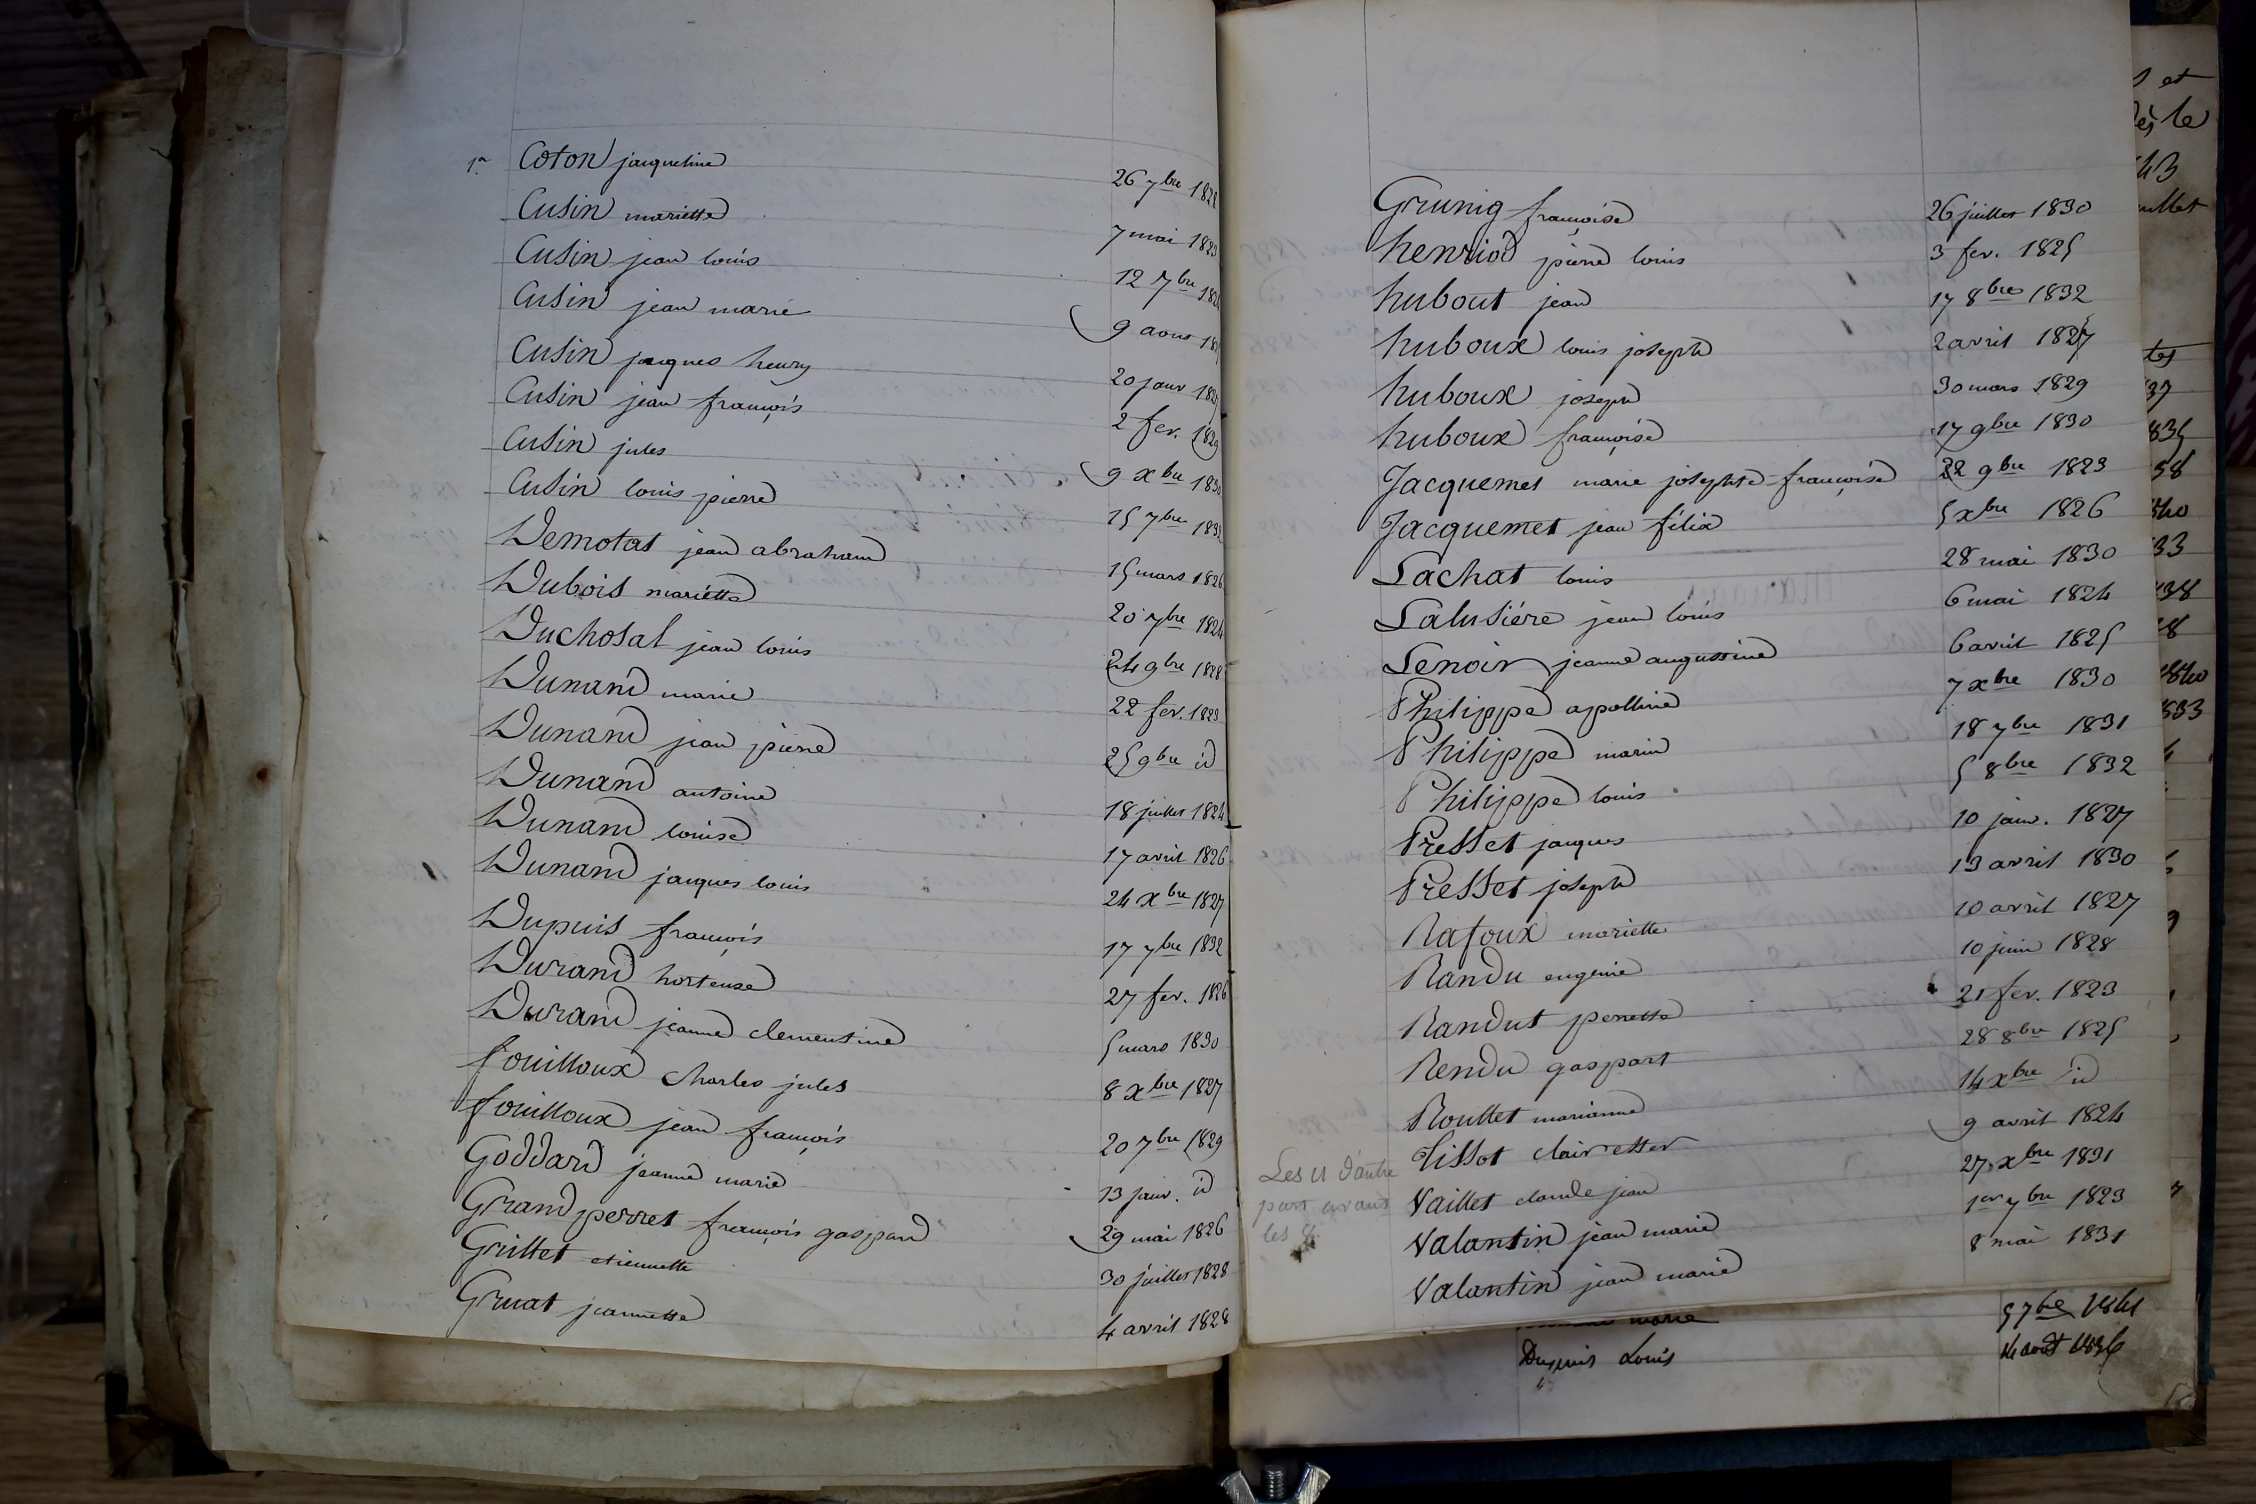 1r. Coton jaqueline 26 7bre 1828
Cusin mariette 7 mai 1823
Cusin jean louis 12 7bre 182
Cusin jean marie 9 aout 18
Cusin jaques henry 20 janv 182
Cusin jean françois 2 fev. 1829
Cusin jules 9 xbre 1830
Cusin louis pierre 15 7bre 1832
Demotas jean abraham 15 mars 1826
Dubois mariette 20 7bre 1824
Duchosal jean louis 24 9bre 1828
Dunand marie 22 fev. 1823
Dunand jean pierre 25 9bre id
Dunand antoine 18 juillet 1824
Dunand louise 17 avril 1826
Dunand jaques louis 24 xbre 1827
Dupuis françois 17 7bre 1832
Durand hortense 27 fev. 1826
Durand jeanne clementine 5 mars 1830
fouilloux charles jules 8 xbre 1827
fouilloux jean françois 20 7bre 1829
Goddard jeanne marie 13 janv. id
Grand perret françois gaspard 29 mai 1826
Grillet etiennette 30 juillet 1828
Gruat jeannette 4 avril 1828
Grunig françoise 26 juillet 1830
henriod pierre louis 3 fev. 1825
hubout jean 17 8bre 1832
huboux louis joseph 2 avril 1827
huboux joseph 30 mars 1829
huboux françoise 17 9bre 1830
Jacquemet marie josephte françoise 22 9bre 1823
Jacquemet jean félix 5 xbre 1826
Lachat louis 28 mai 1830
Lalusiére jean louis 6 mai 1824
Lenoir jeanne augustine 6 avril 1825
Philippe apolline 7 xbre 1830
Philippe marin 18 7bre 1831
Philippe louis 5 8bre 1832
Presset jaques 10 janv. 1827
Presset joseph 13 avril 1830
Rafoux mariette 10 avril 1827
Randu eugenie 10 juin 1828
Randut penette 21 fev. 1823
Rendu gaspart 28 8bre 1825
Roullet marianne 14 xbre id
Tissot clair ester 9 avril 1824
Vaillet claude jean 27 xbre 1831
Valantin jean marie 1er 7bre 1823
Valantin jean marie 8 mai 1831
Les U d'autre
part avant
les
marie 5 7bre 1841
Dupuis Louis 14 août 1836
et
dès le
43
juillet
tes
37
835
38
840
33
838
8
1840
1833